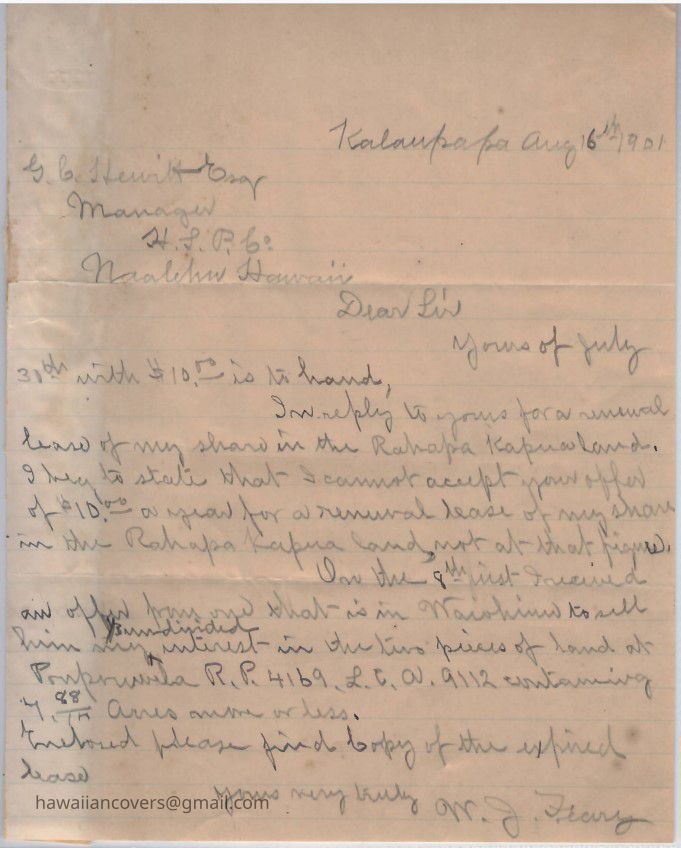 Kalaupapa Aug 16th 1901
G. C. Hewitt Esqr
Manager
H. S. P. Co.
Naalehu Hawaii
Dear Sir
Yours of July
30th with $10.00 is to hand,
In reply to yours for a renewal
lease of my share in the Rahapa Kapua land.
I beg to state that I cannot accept your offer
of $10.00 a year for a renewal lease of my share
in the Rahapa Kapua land, not at that figure.
On the 8th inst I recived
an offer from one that is in Waiohinu to sell
him my undivided interest in the two pieces of land at
R. P. 4169. L. C. A. 9112 containing
7. 88/100 Acres more or less.
Enclosed please find Copy of the expired
lease
Yours very truly
W. J. Feary
hawaiiancovers@gmail.com